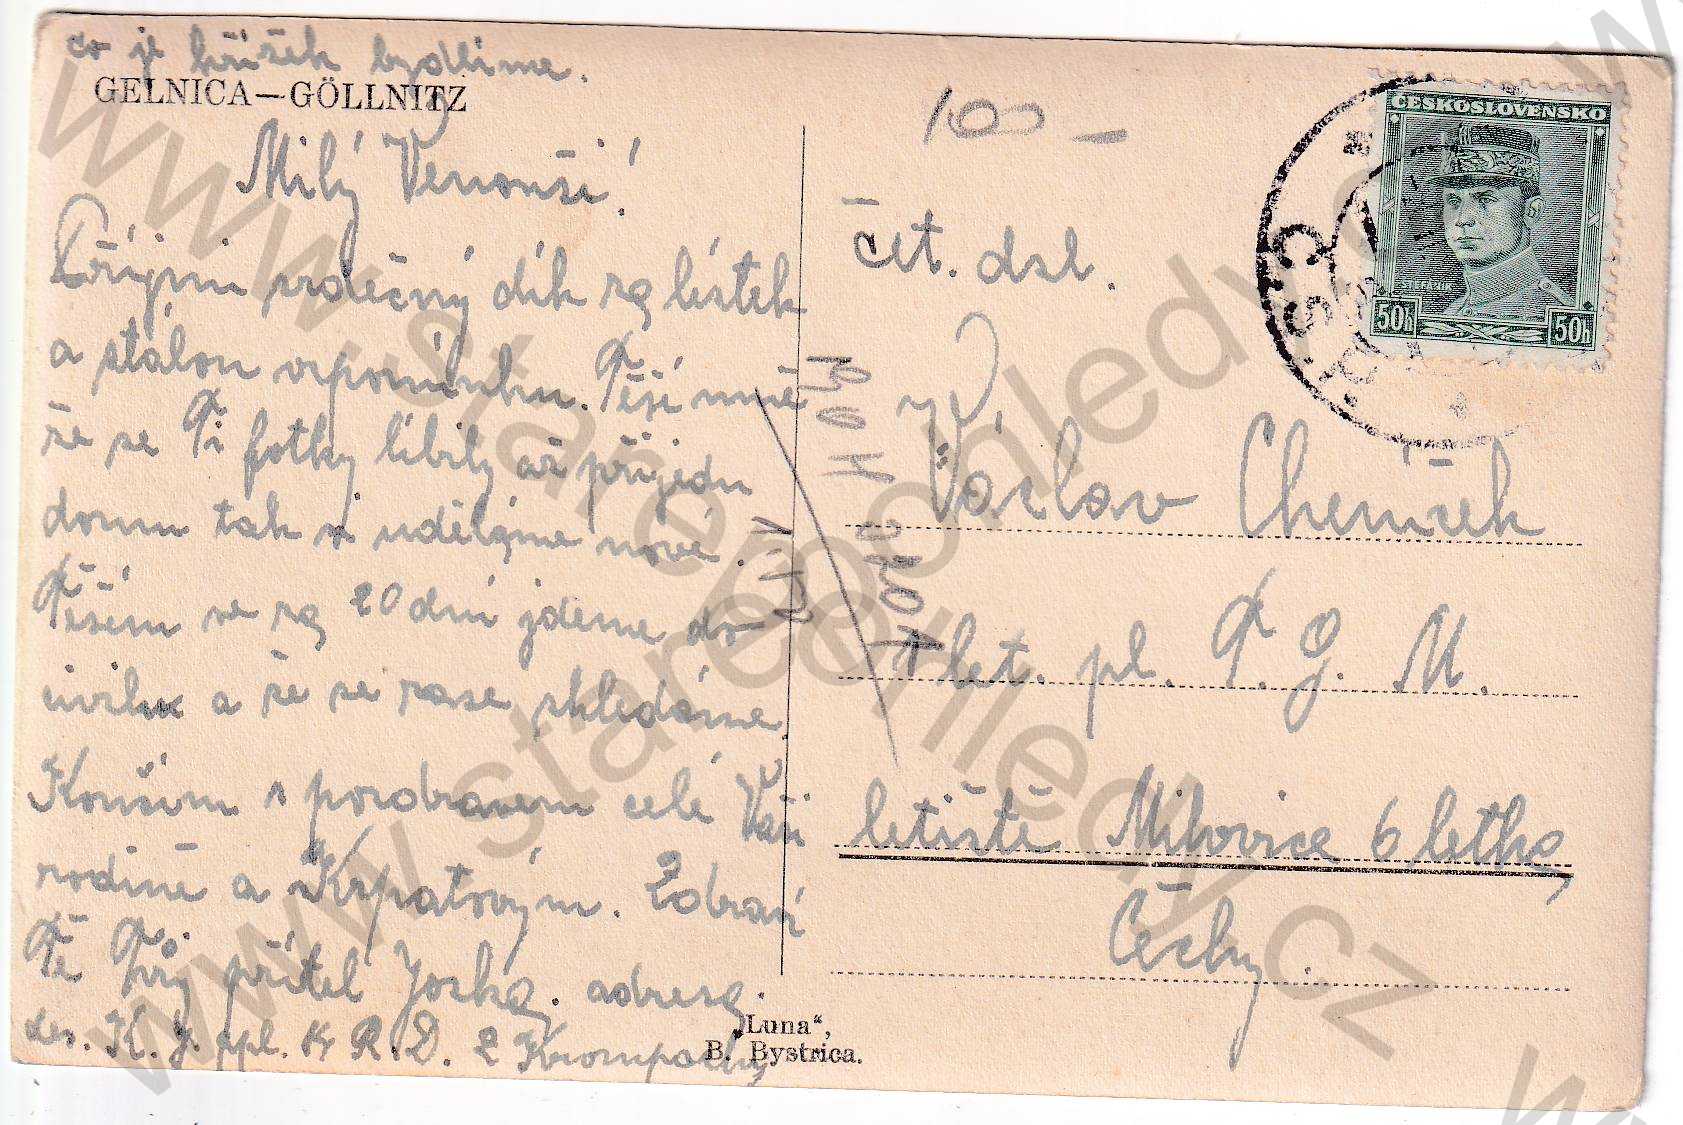 co je křížek bydlíme.
GELNICA—GÖLLNITZ
Milý Venouši!
Přijmi srdečný dík za lístek
a stálou vzpomínku. Těší mně
že se Ti fotky líbily až přijedu
domu tak si uděláme nové.
Těším se za 20 dní jdeme do
civilu a že se zase shledáme.
Končím s pozdravem celé Vaší
rodině a Zdraví
Tě Tvůj přítel Joska. adresa.
K. J. R. D. 2 Krompachy
„Luna“,
B. Bystrica.
100 —
ČESKOSLOVENSKO
ŠTEFÁNIK
50h 50h
čet. dsl.
Václav
let. pl. T. G. M.
letiště Milovice 6 letka
Čechy.
www.starepohledy.cz
www.starepohledy.cz